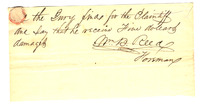 the Jury find for the Plaintiff
and say that he recover Five dollars
damages
Wm B. Reed
Foreman